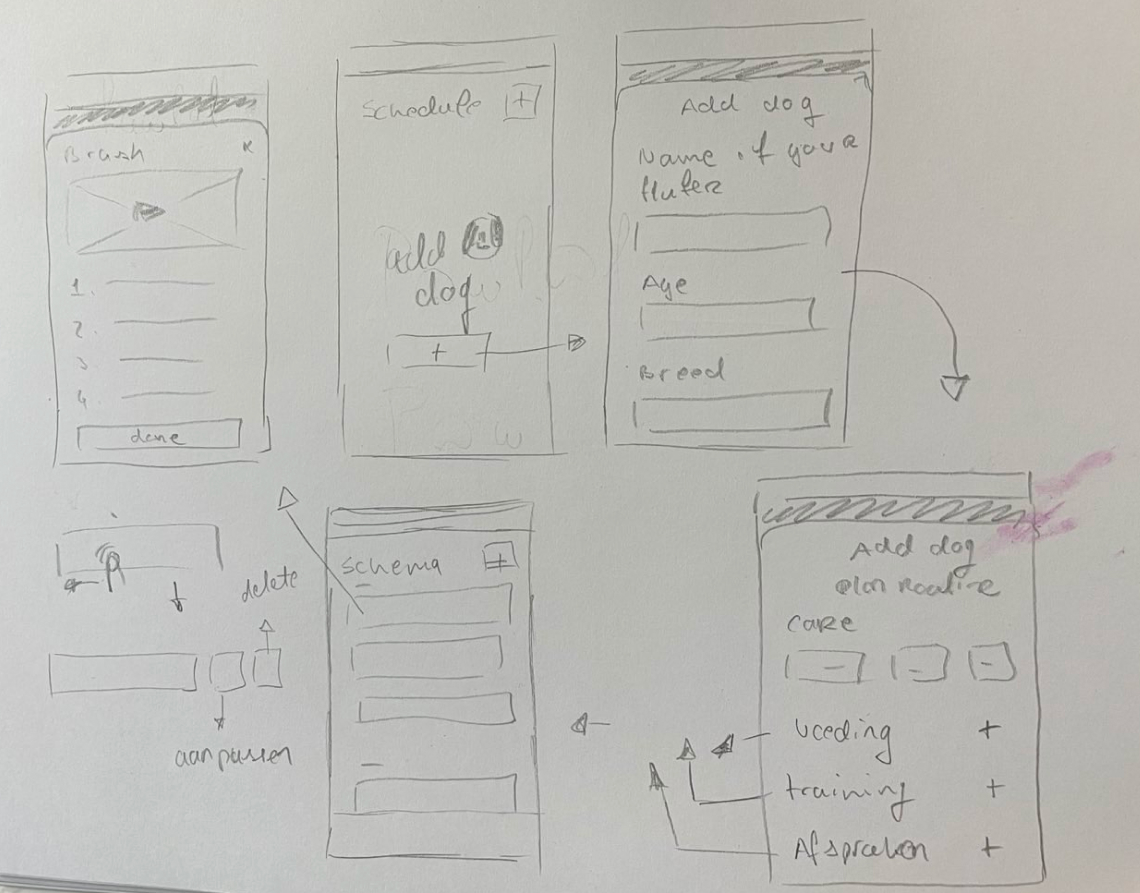 Brush x
1.
2.
3
4.
done
Schedule +
add
dog
+
Add dog
Name of your
flufer
Age
Breed
delete
aanpassen
schema +
Add dog
plan routine
care
voeding +
training +
Afspraken +